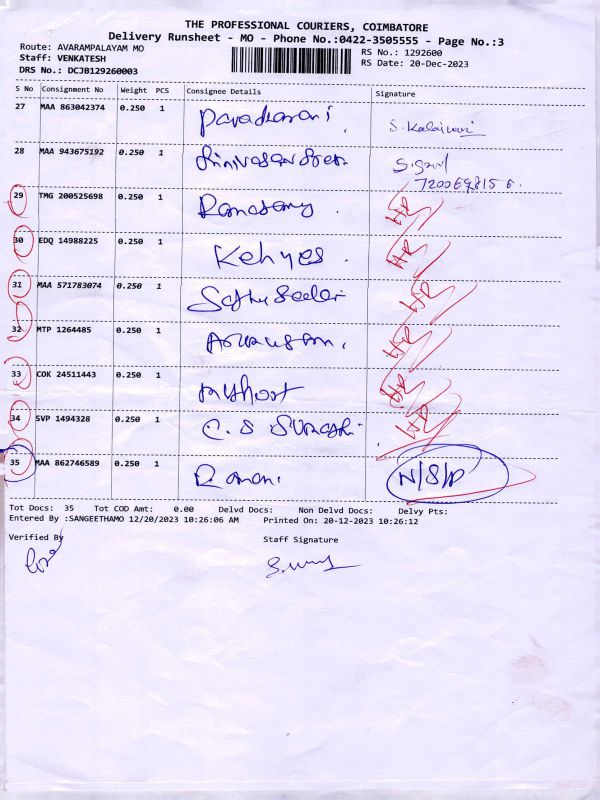 THE PROFESSIONAL COURIERS, COIMBATORE
Delivery Runsheet - MO - Phone No.:0422-3505555 - Page No.:3
Route: AVARAMPALAYAM MO
RS No.: 1292600
Staff: VENKATESH
RS Date: 20-Dec-2023
DRS No.: DCJB129260003
S No Consignment No Weight PCS Consignee Details Signature
27 MAA 863042374 0.250 1 S. Kalaivani
28 MAA 943675192 0.250 1
29 TMG 200525698 0.250 1 Ramasamy HR
30 EDQ 14988225 0.250 1 Kehyes HR
31 MAA 571783074 0.250 1 HR
32 MTP 1264485 0.250 1 HR
33 COK 24511443 0.250 1 HR
34 SVP 1494328 0.250 1 C. S Suresh HR
35 MAA 862746589 0.250 1 Ramani N/S/P
Tot Docs: 35 Tot COD Amt: 0.00 Delvd Docs: Non Delvd Docs: Delvy Pts:
Entered By :SANGEETHAMO 12/20/2023 10:26:06 AM Printed On: 20-12-2023 10:26:12
Verified By Staff Signature